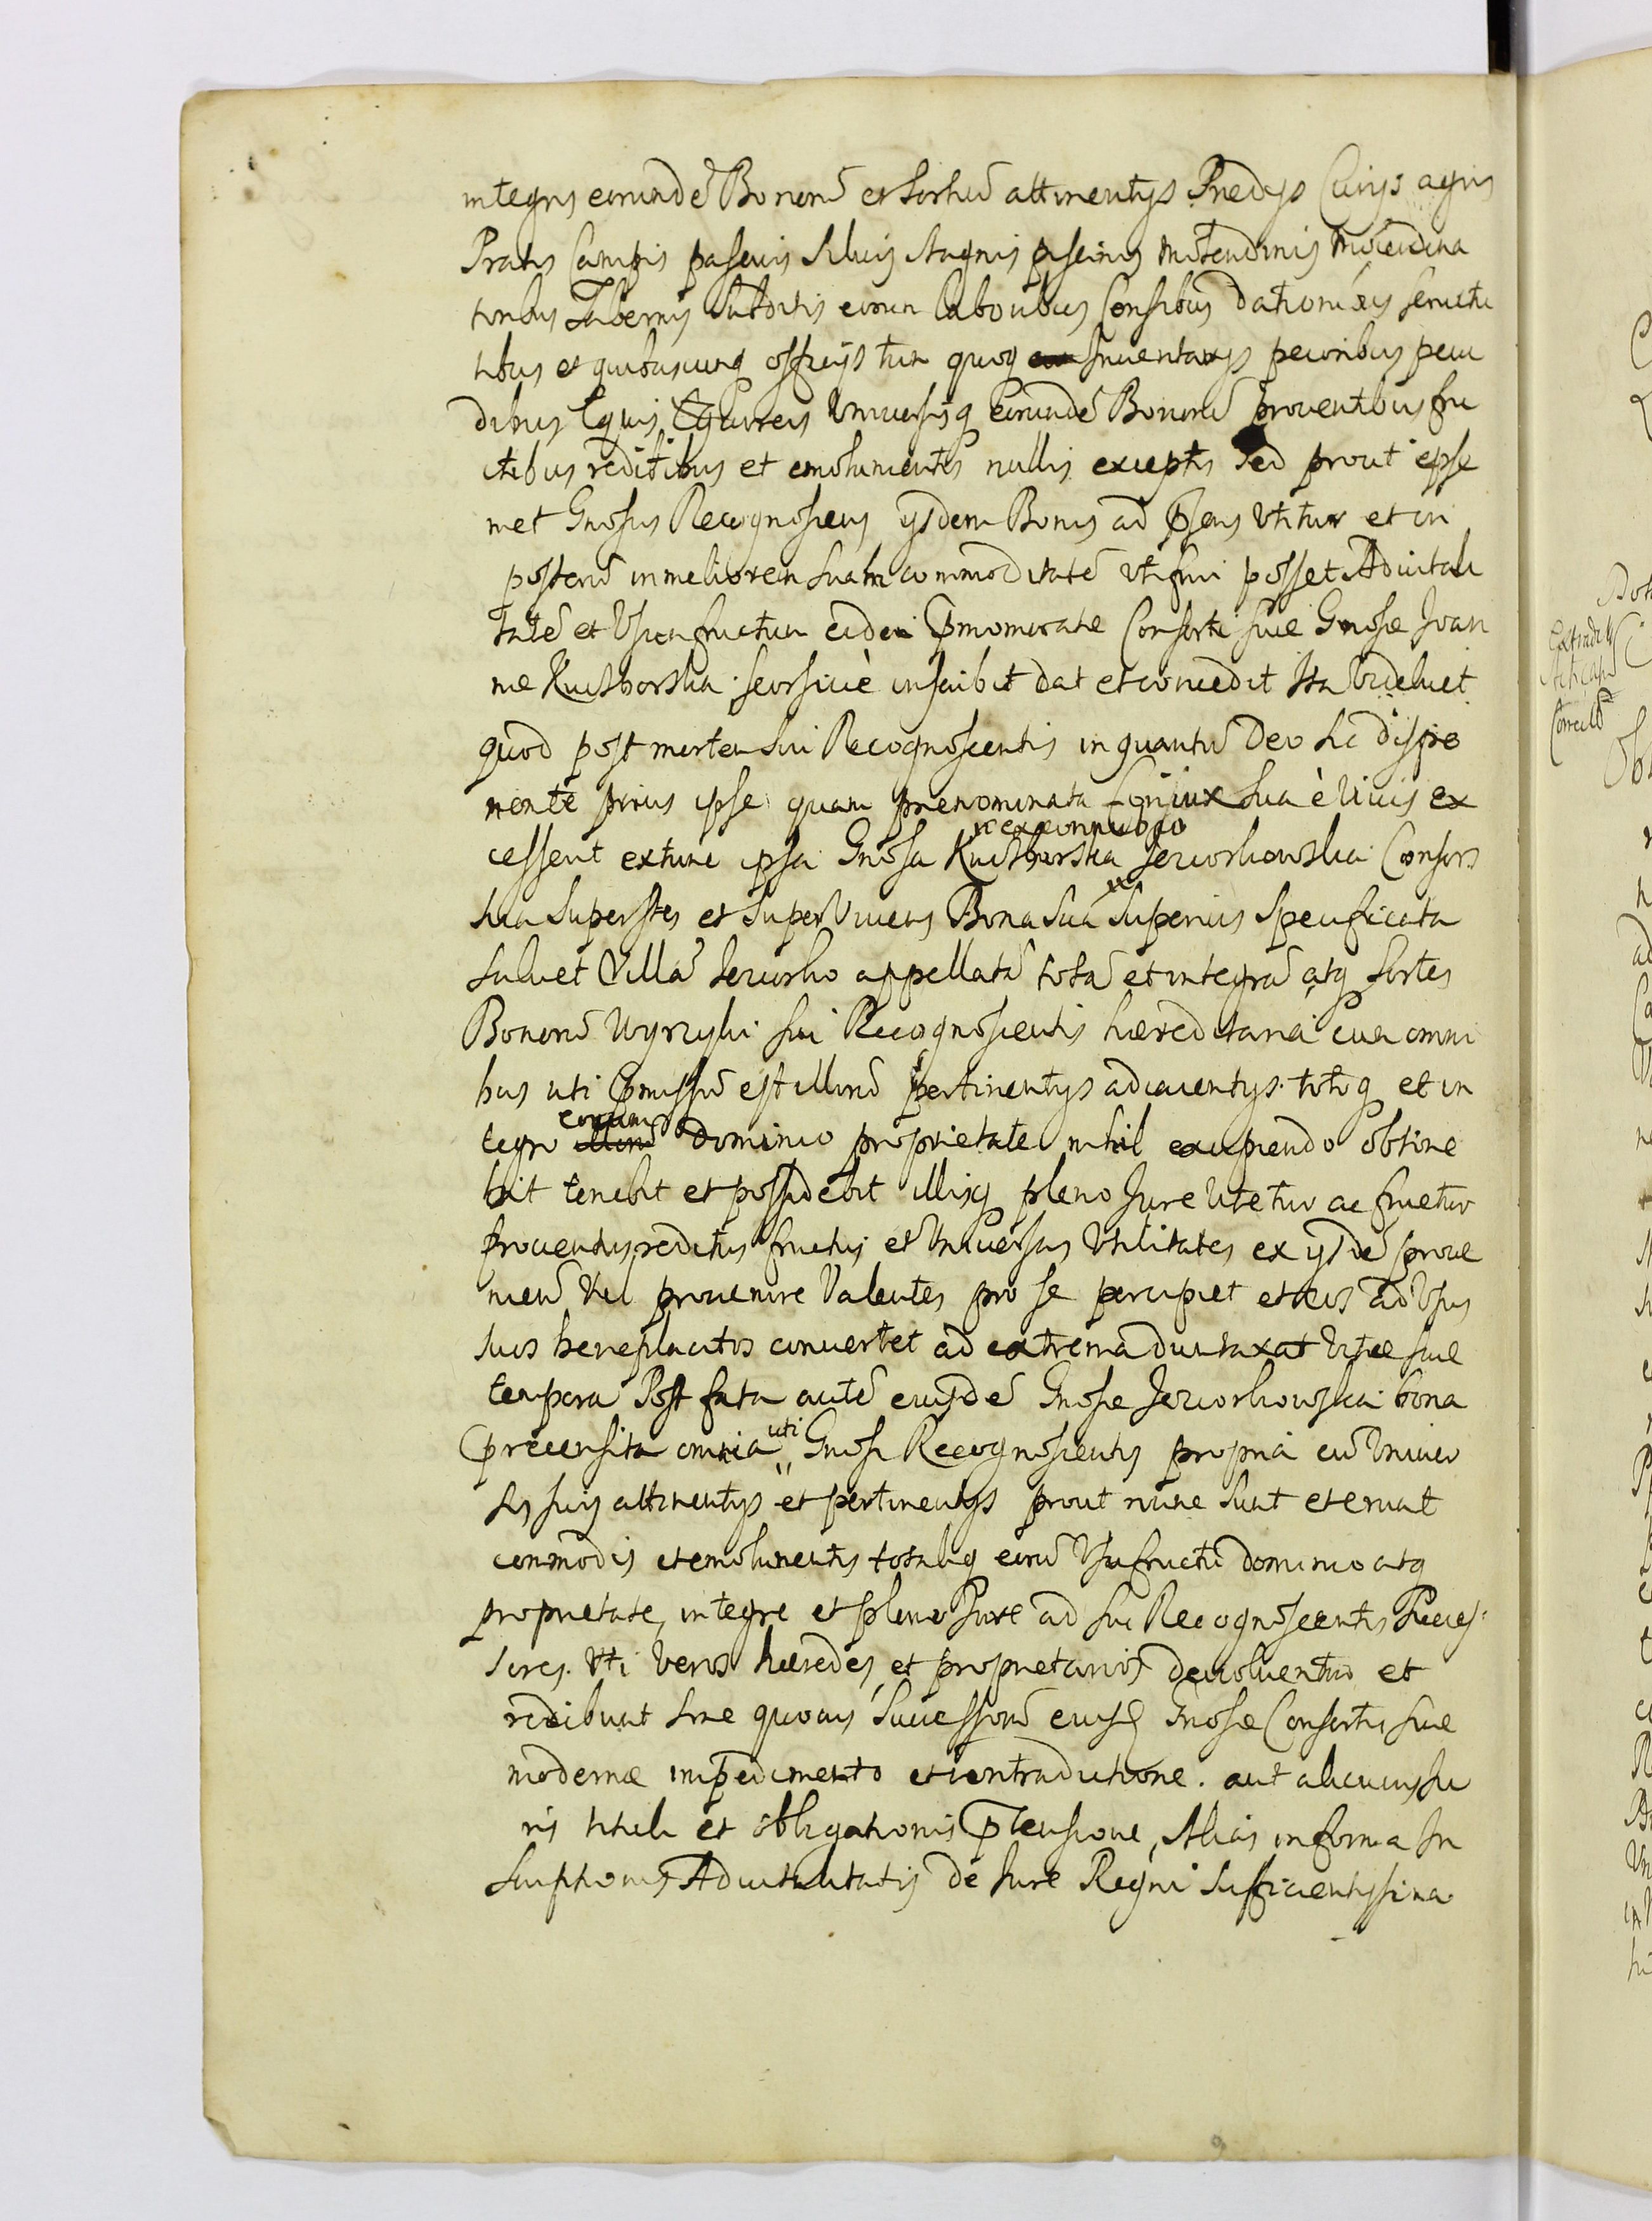 integris eorundē Bonorū et Sortiū attinentijs Predijs Curijs agris
Pratis Campis pascuis Siluis stagnis piscinis molendinis molendina
toribus Tabernis Subditis eorum laboribus Censibus dationibus seruitu
tibus et quibuscunq officijs tum quoq Inuentarijs pecoribus pecu
dibus Equis Equireis Vniuersisq Eorundē Bonorū prouentibus fru
ctibus reditibus et emolumentis nullis exceptis Sed prout ipse
met Gnosus Recognoscens ijsdem Bonis ad p̄sens Vtitur et in
posterū in meliorem suam commoditatē Vtifrui posset Aduitali
tatē et Vsumfructum eidem p̄nominatæ Consorti suæ Gnosæ Joan
næ Kuczborska seorsiuè inscribit dat et concedit Ita Videlicet
quod post mortem Sui Recognoscentis in quantū Deo Sic dispo
nente prius ipse quam prenominata Coniux Sua è Viuis ex
ex connubio
cesserit extunc ipsa Gnosa Kuczborska Jeziorkowska Consors
Sua Superstes et SuperViuens Bona Sua Superius Specificata
Saluet Villā Jeziorko appellatā totā et integrā atq Sortes
Bonorū Wyrzyki sui Recognoscentis hæreditaria cum omni
bus uti p̄missū est illorū pertinentijs adiacentijs totoq et in
eorum
tegro illorū dominio proprietate nihil excipiendo obtine
bit tenebit et possidebit illisq pleno Jure Vtetur ac fruetur
prouentus reditus fructus et Vniuersas Vtilitates ex ijsdē proue
nien̄ Vel prouenire Valentes pro se percipiet et eos ad Vsus
suos beneplacitos conuertet ad extrema duntaxat Vitæ suæ
tempora Post fata autē eiusdē Gnosæ Jeziorkowska bona
uti
p̄recensita omnia Gnosi Recognoscentis propria cū Vniuer
sis suis attinentijs et pertinentijs prout nunc sunt et erunt
commodis et emolumentis totaliq eorū Vsufructū dominio atq
proprietate, integre et pleno Jure ad sui Recognoscentis Succes
sores Vti Veros hæredes et proprietarios deuoluentur et
redibunt sine quouis Successorū eiusd Gnosæ Consortis suæ
modernæ impedimento et contradictione. aut alicuius Ju
ris tituli et obligationis p̄tensione, Alias in forma In
scriptionis Aduitalitatis de Jure Regni Sufficientissima